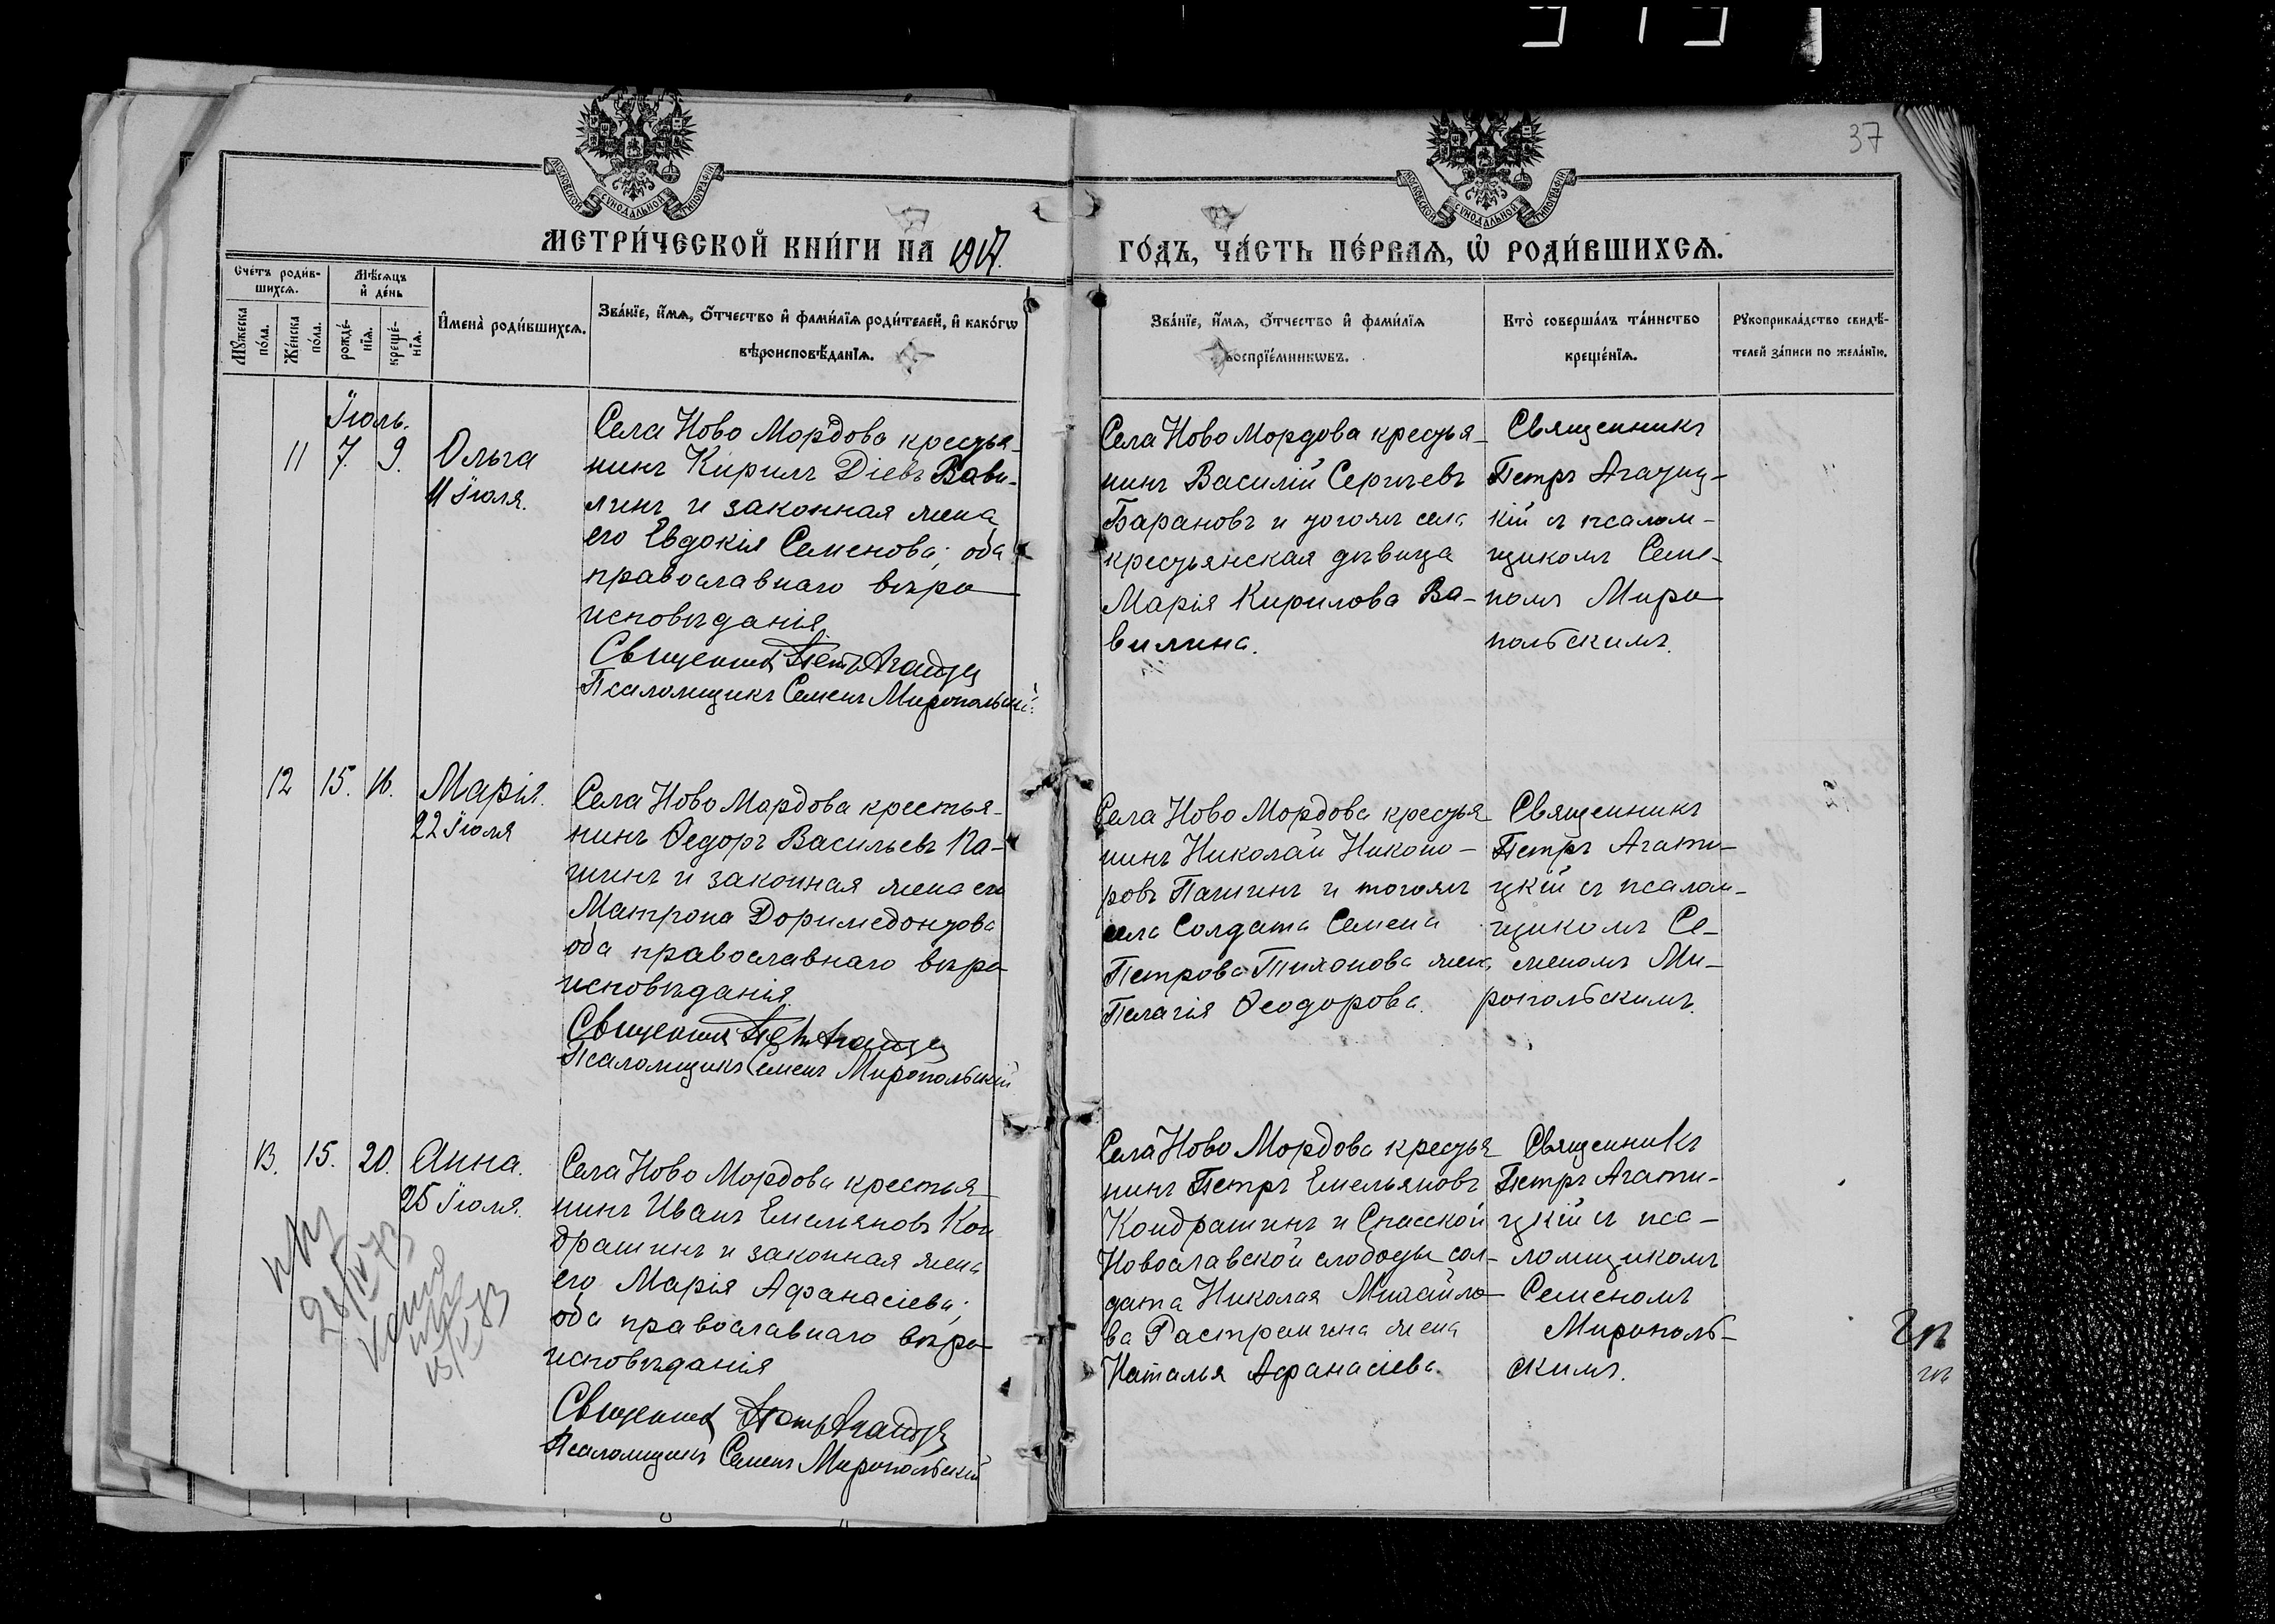 37
МОСКОВСКОЙ СУНОДАЛЬНОЙ ТИПОГРАФІИ
МОСКОВСКОЙ СУНОДАЛЬНОЙ ТИПОГРАФІИ
МЕТРИ́ЧЕСКОЙ КНИ́ГИ НА 1917.
ГО́ДЪ, ЧА́СТЬ ПЕ́РВАѦ, Ѽ РОДИ́ВШИХСѦ.
Сче́тъ роди́в-
шихсѧ.
Мѣ́сѧцъ
и҆ де́нь
Мꙋ́жеска
по́ла.
Же́нска
по́ла.
рожде́-
нїѧ.
креще́-
нїѧ.
И҆мена̀ роди́вшихсѧ.
Зва́нїе, и҆́мѧ, ѻ҆́тчество и҆ фами́лїѧ роди́телей, и҆ како́гѡ
вѣроисповѣ́данїѧ.
Зва́нїе, и҆́мѧ, ѻ҆́тчество и҆ фами́лїѧ
воспрїе́мникѡвъ.
Кто̀ соверша́лъ та́инство
креще́нїѧ.
Рꙋкоприкла́дство свидѣ́-
телей за́писи по жела́нїю.
Іюль.
11 7. 9. Ольга
11 Іюля.
Села Ново Мордова крестья-
нинъ Кирилъ Діевъ Вави-
линъ и законная жена
его Евдокія Семенова; оба
православнаго вѣро-
исповѣданія.
Священникъ Петръ Агатиц
Псаломщикъ Семенъ Миропольскій.
Села Ново Мордова крестья-
нинъ Василій Сергѣевъ
Барановъ и тогожъ села
крестьянская дѣвица
Марія Кирилова Ва-
вилина.
Священникъ
Петръ Агатиц-
кій съ псалом-
щикомъ Семе-
номъ Миро-
польскимъ.
12 15. 16. Марія.
22 Іюля
Села Ново Мордова крестья-
нинъ Ѳедоръ Васильевъ Па-
шинъ и законная жена его
Матрона Доримедонтова
оба православнаго вѣро-
исповѣданія.
Священникъ Петръ Агатиц
Псаломщикъ Семенъ Миропольскій
Села Ново Мордова крестья-
нинъ Николай Никоно-
ровъ Пашинъ и тогожъ
села Солдата Семена
Петрова Тихонова жена
Пелагія Ѳеодорова.
Священникъ
Петръ Агати-
цкій съ псалом-
щикомъ Се-
меномъ Ми-
ропольскимъ.
13. 15. 20. Анна.
25 Іюля.
Села Ново Мордова крестья-
нинъ Иванъ Емельяновъ Кон
драшинъ и законная жена
его Марія Аѳанасіева;
оба православнаго вѣро-
исповѣданія
Священникъ Петръ Агатиц
Псаломщикъ Семенъ Миропольскій
Села Ново Мордова крестья-
нинъ Петръ Емельяновъ
Кондрашинъ и Спасской
Новославской слободы сол-
дата Николая Михайло-
ва Растрепина жена
Наталья Аѳанасіева.
Священникъ
Петръ Агати-
цкій съ пса-
ломщикомъ
Семеномъ
Мирополь-
скимъ.